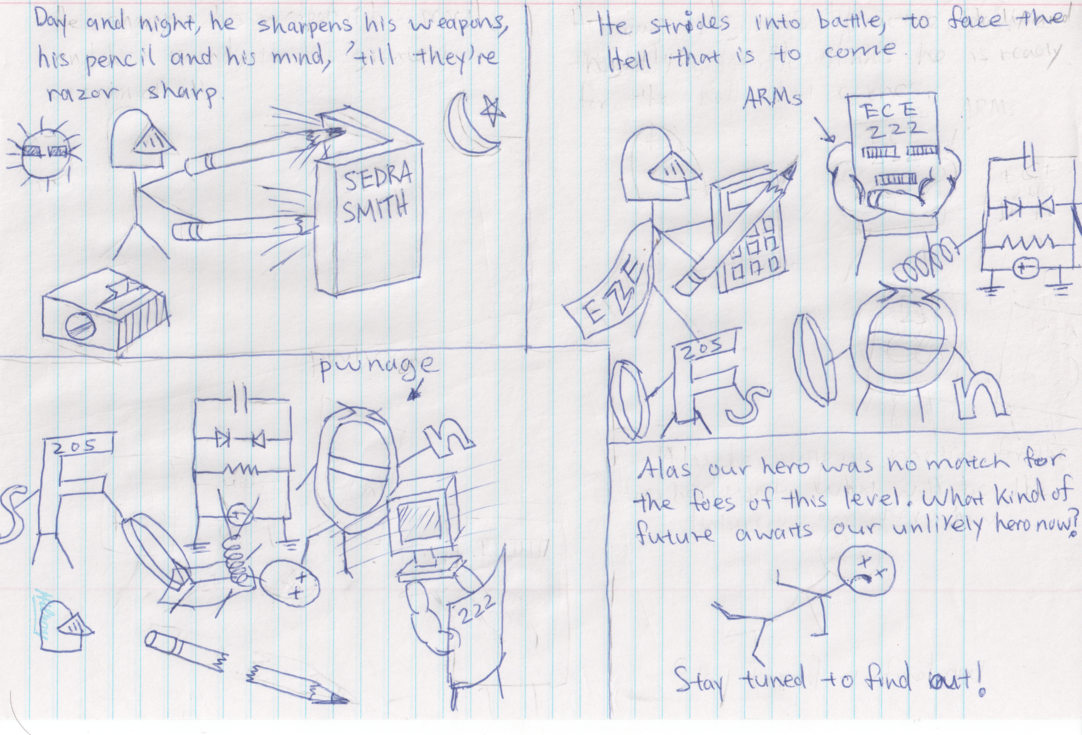 Day and night, he sharpens his weapons,
his pencil and his mind, 'till they're
razor sharp.
SEDRA
SMITH
He strides into battle, to face the
Hell that is to come.
ARMs
ECE
222
EZE
205
S
n
pwnage
205
S
n
222
Alas our hero was no match for
the foes of this level. What kind of
future awaits our unlikely hero now?
Stay tuned to find out!